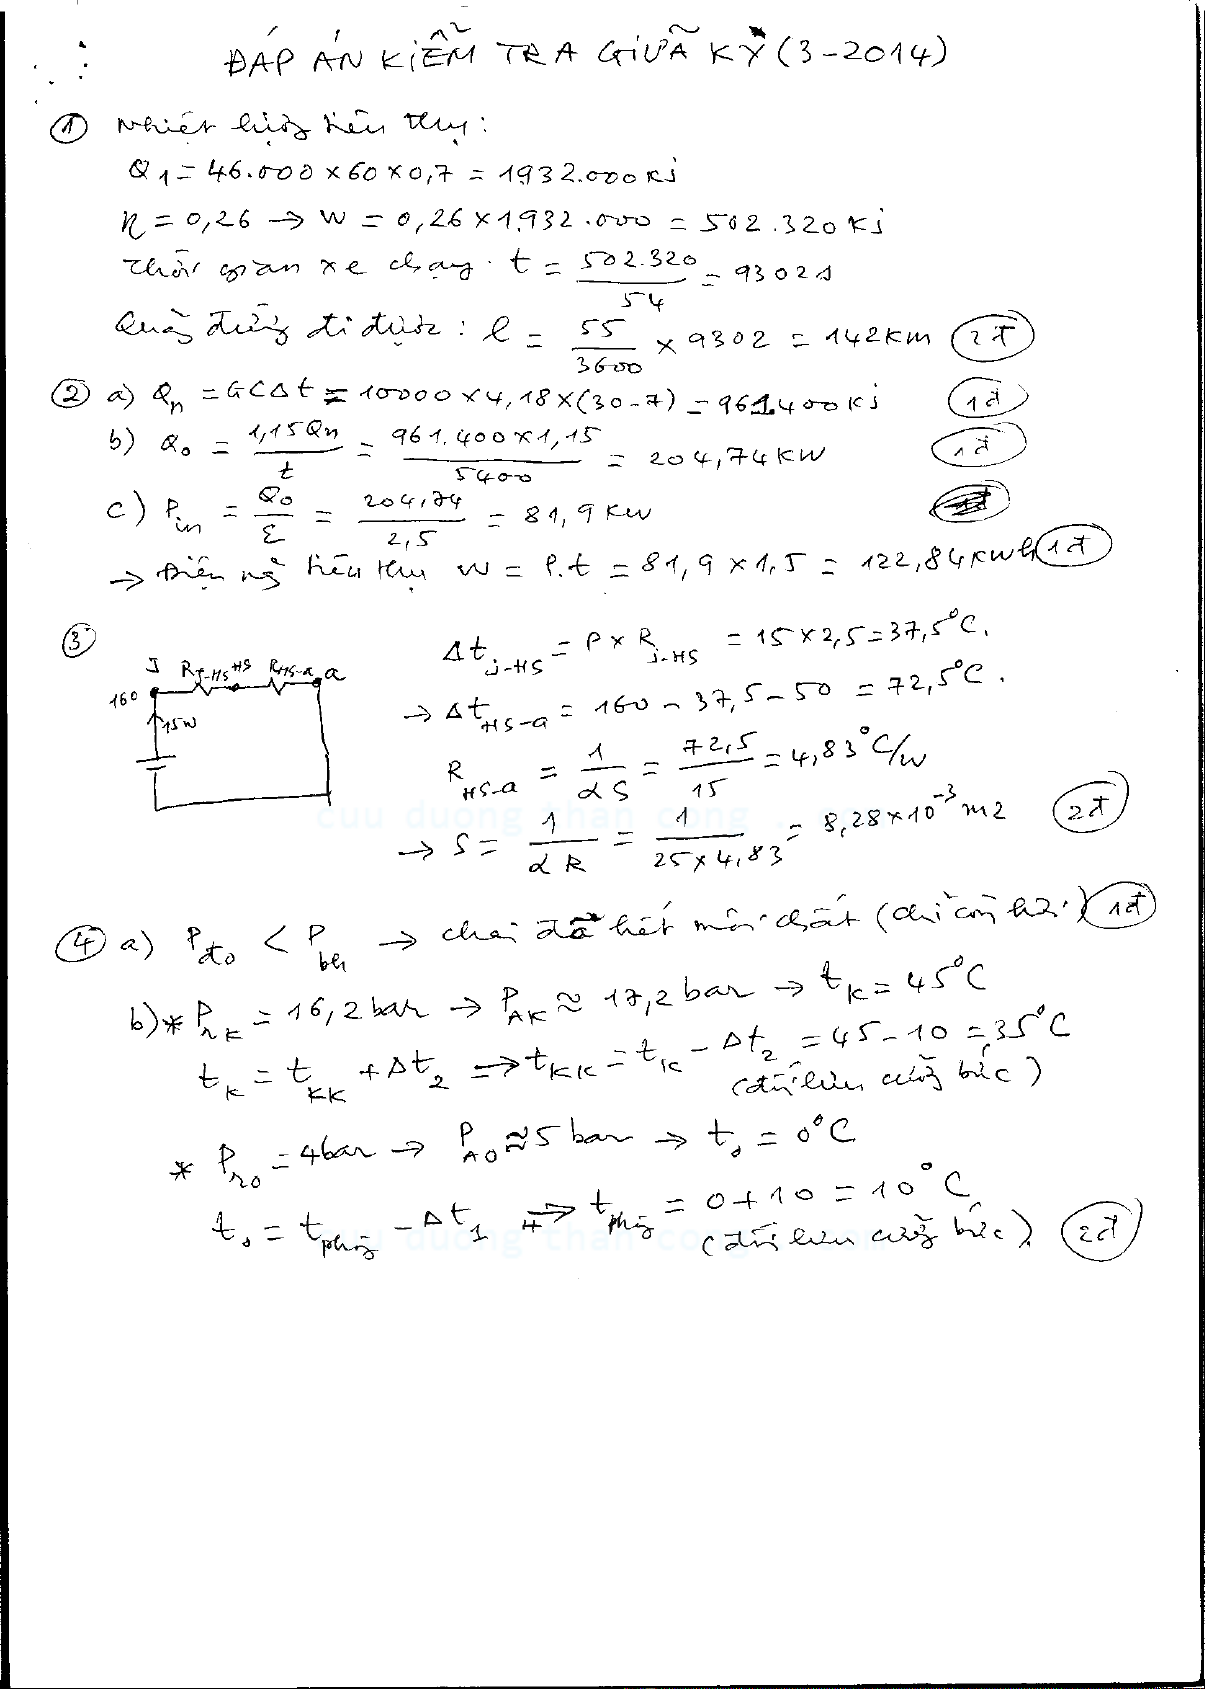 ĐÁP ÁN KIỂM TRA GIỮA KỲ (3-2014)
① Nhiệt lượng tiêu thụ:
Q1 = 46.000 x 60 x 0,7 = 1932.000 KJ
η = 0,26 → W = 0,26 x 1932.000 = 502.320 KJ
Thời gian xe chạy t = 502.320 / 54 = 9302 s
Quãng đường đi được: l = 55 / 3600 x 9302 = 142 KM (2đ)
② a) Qn = GCΔt = 10000 x 4,18 x (30-7) = 961.400 KJ (1đ)
b) Q0 = 1,15Qn / t = 961.400 x 1,15 / 5400 = 204,74 KW (1đ)
c) Pin = Q0 / ε = 204,74 / 2,5 = 81,9 KW
→ Điện năng tiêu thụ W = P.t = 81,9 x 1,5 = 122,84 KWh (1đ)
③ J RJ-HS HS RHS-a a
160
15W
Δt j-HS = P x R j-HS = 15 x 2,5 = 37,5°C.
→ Δt HS-a = 160 - 37,5 - 50 = 72,5°C.
R HS-a = 1 / αS = 72,5 / 15 = 4,83°C/W
cuu duong than cong . com
→ S = 1 / αR = 1 / 25 x 4,83 = 8,28 x 10⁻³ m2 (2đ)
④ a) Pđo < Pbh → chai đã hết môi chất (chỉ còn hơi) (1đ)
b) * PrK = 16,2 bar → PAK ≈ 17,2 bar → tK = 45°C
tK = tKK + Δt2 ⇒ tKK = tK - Δt2 = 45 - 10 = 35°C
(đối lưu cưỡng bức)
* Pr0 = 4 bar → PA0 ≈ 5 bar → t0 = 0°C
t0 = tphg - Δt1 ⇒ tphg = 0 + 10 = 10°C
(đối lưu cưỡng bức) (2đ)
cuu duong than cong . com